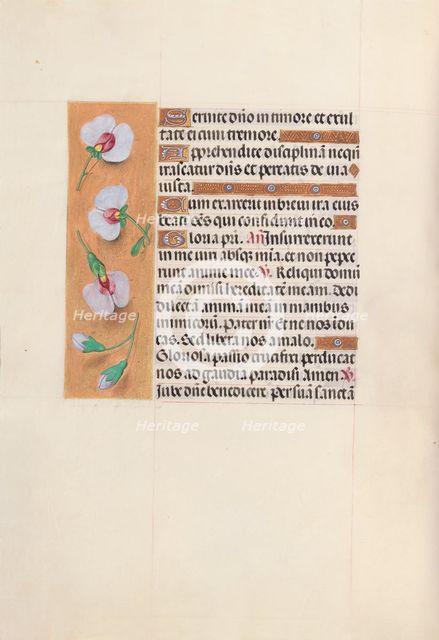 Servite dño in timore et exul
tate ei cum tremore.
Apprehendite disciplinã nequñ
irascatur dñs et pereatis de via
iusta.
Cum exarserit in brevi ira eius
beati oẽs qui confidunt in eo.
Gloria pri. Añ Insurrexerunt
in me viri absque mĩa. et non peper
cerunt anime mee. V. Reliqui domũ
meã dimisi hereditatẽ meam. Dedi
dilectã animã meã in manibus
inimicorũ. Pater nr̃. Et ne nos idu
cas. Sed libera nos a malo.
Gloriosa passio crucifixi perducat
nos ad gaudia paradisi Amen V.
Iube dñe benedicere. Per suã sanctã
Heritage
Heritage
Heritage
Heritage
Heritage
Heritage